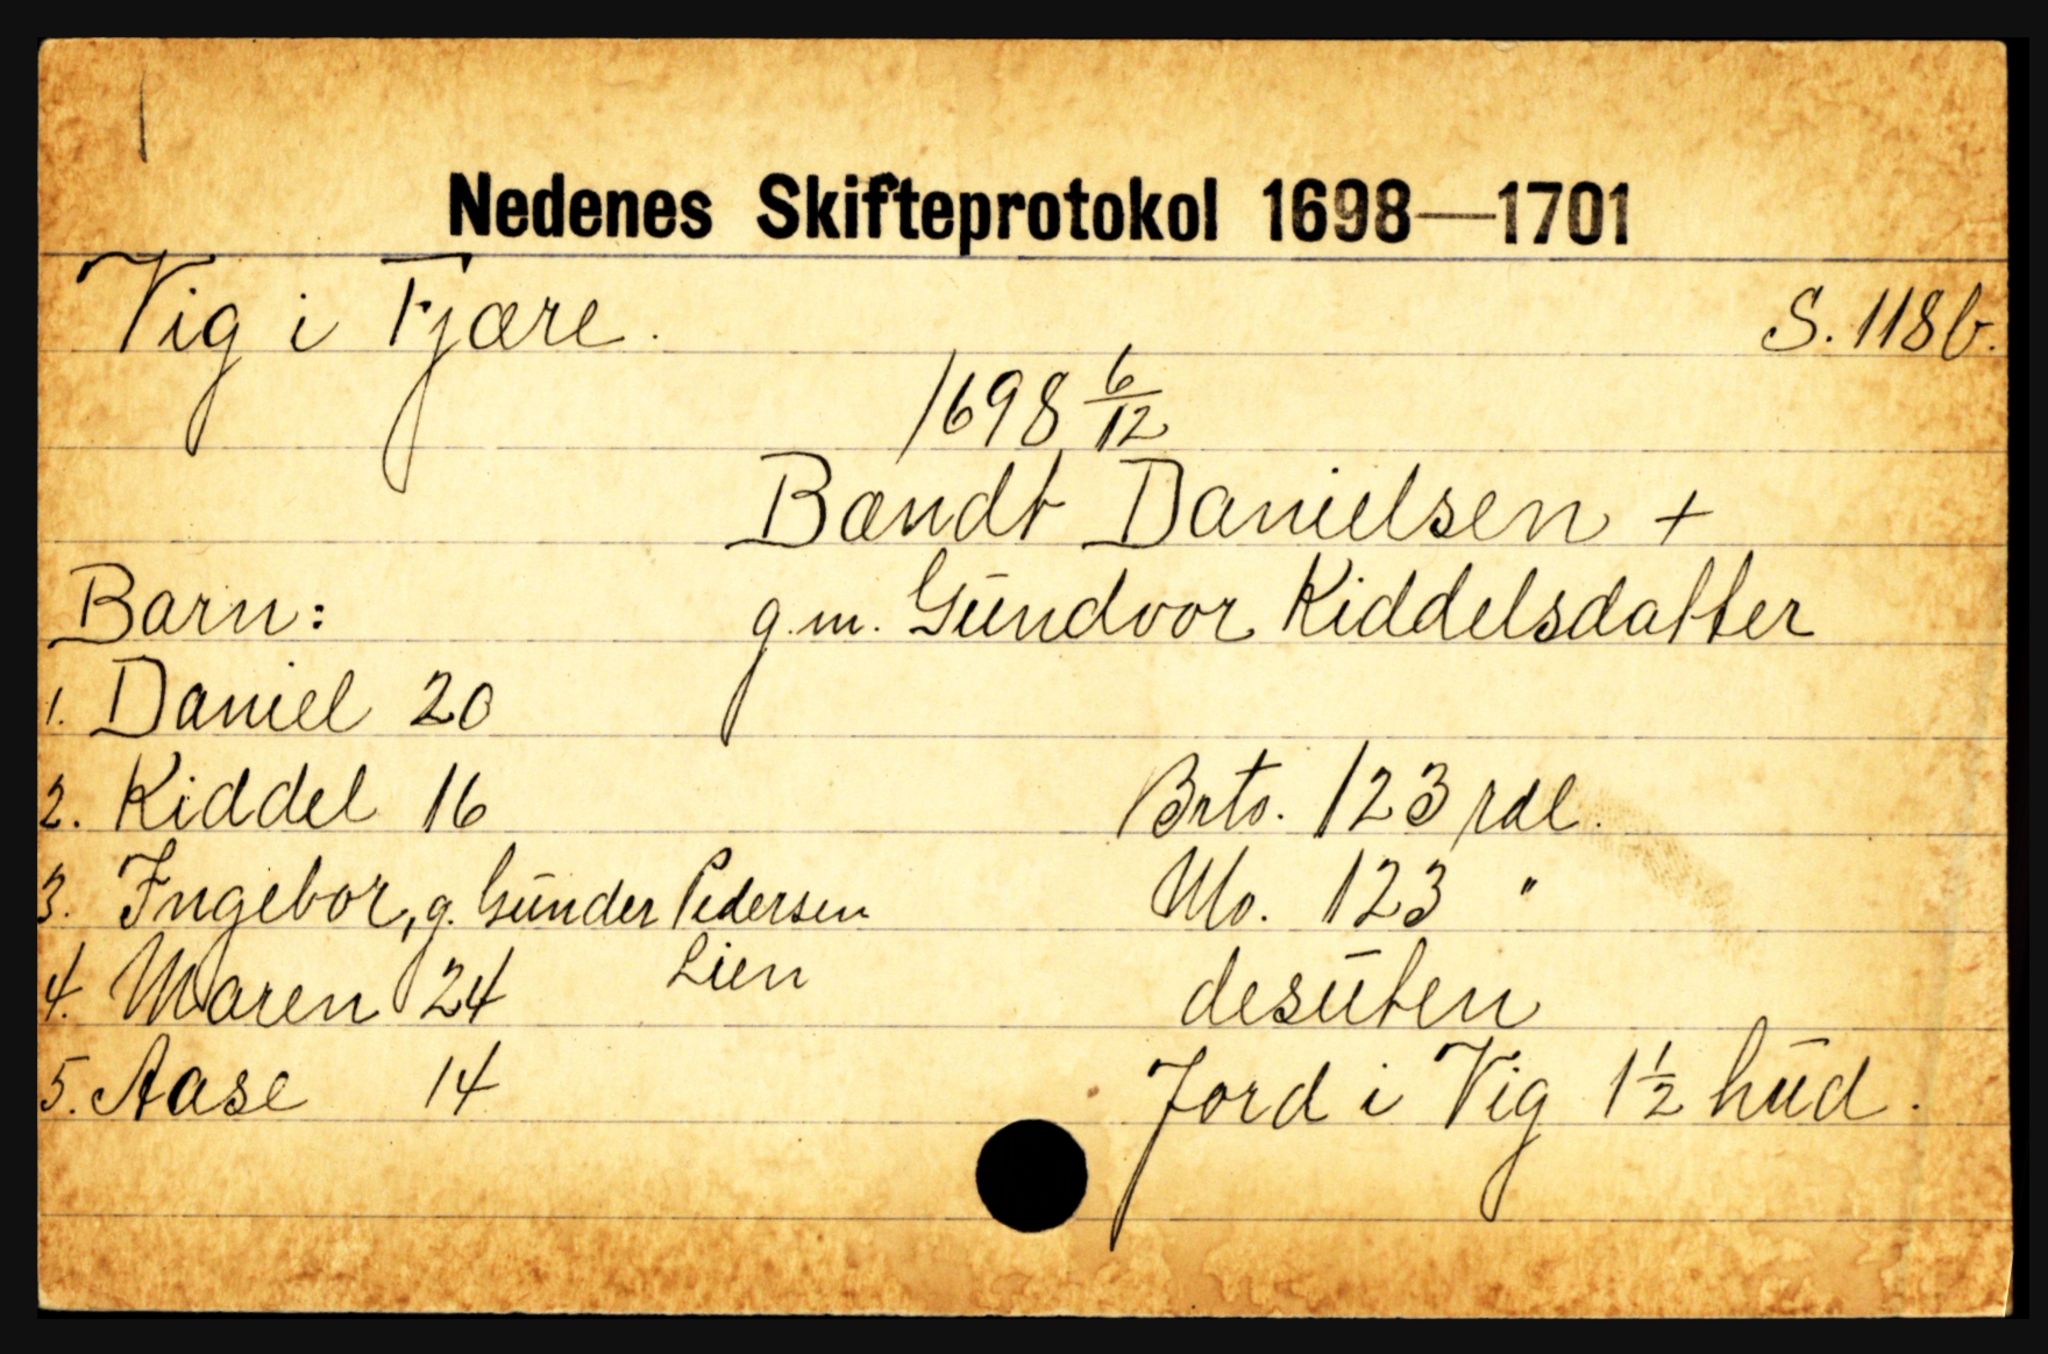 Nedenes Skifteprotokol 1698—1701
Vig i Fjære. S. 118b.
1698 6/12
Bændt Danielsen +
Barn: g.m. Gundvor Kiddelsdatter
1. Daniel 20
2. Kiddel 16 Brto. 123 rdl.
3. Ingebor, g. Gunder Pedersen Nto. 123 "
Lien
4. Maren 24 desuten
5. Aase 14 Jord i Vig 1 1/2 hud.